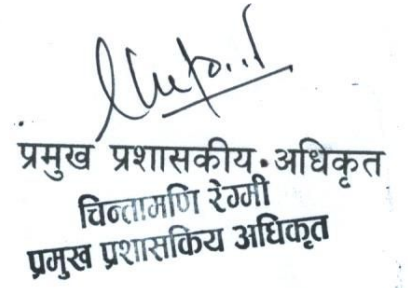 प्रमुख प्रशासकीय अधिकृत
चिन्तामणि रेग्मी
प्रमुख प्रशासकिय अधिकृत